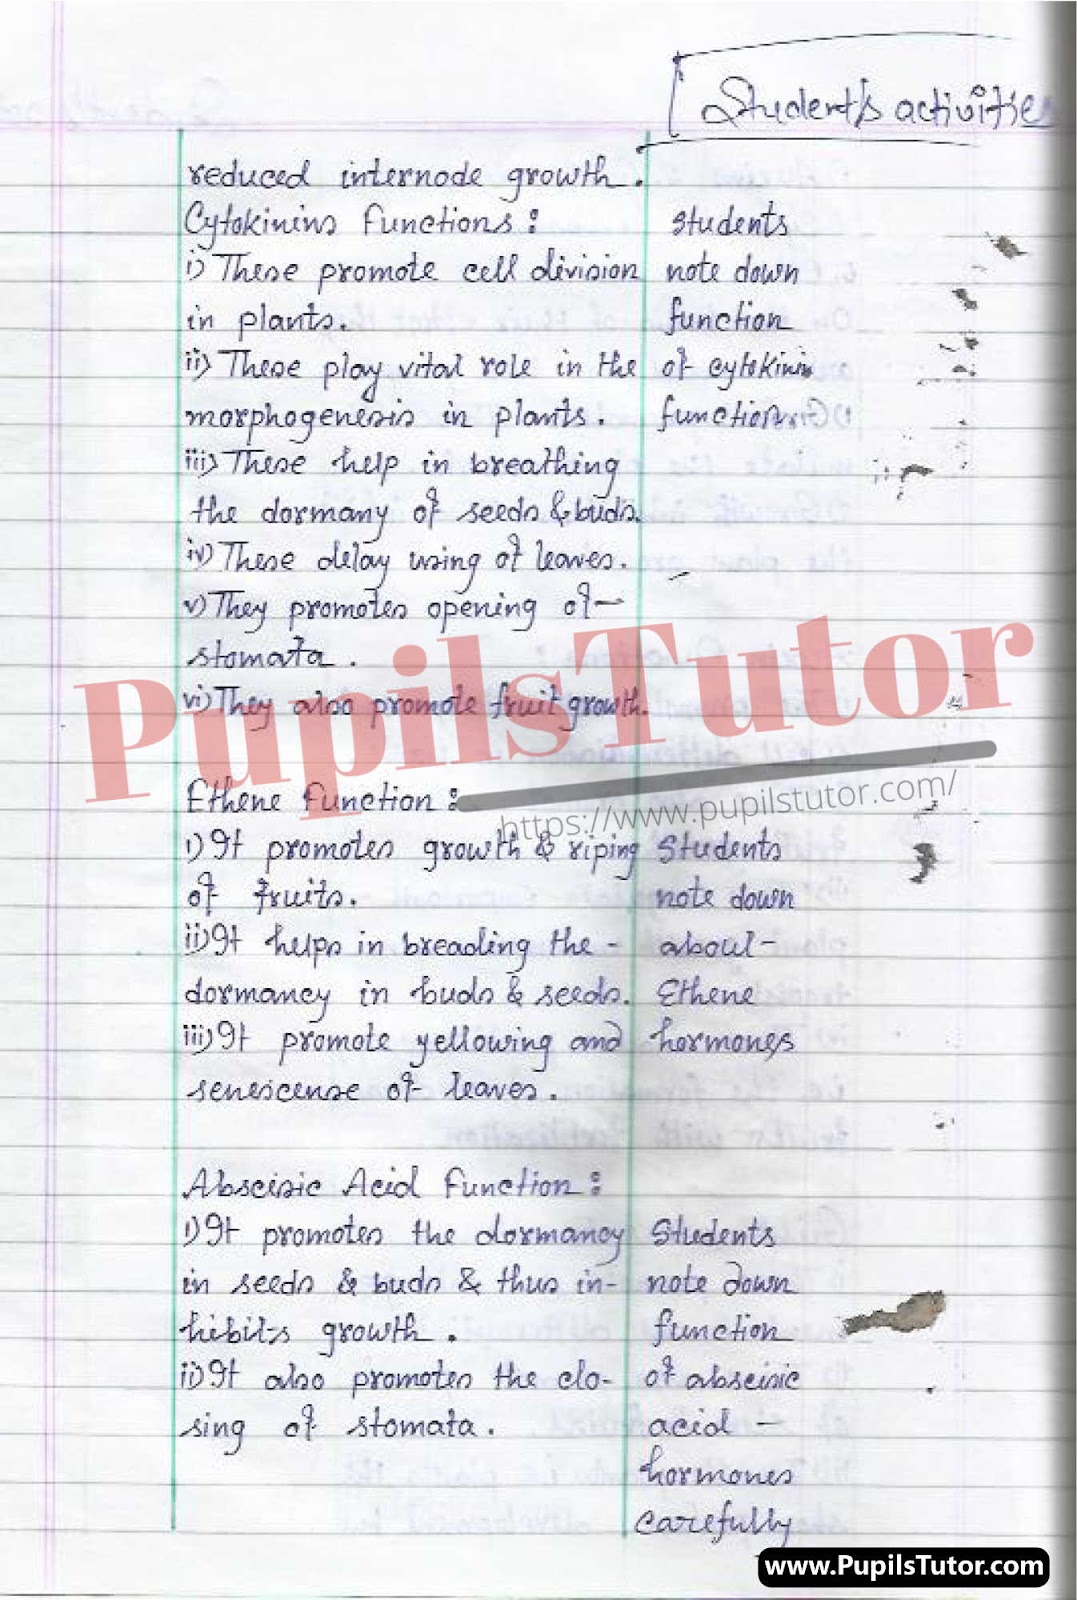 Student's activities
reduced internode growth.
Cytokinins functions:
i) These promote cell division
in plants.
ii) These play vital role in the
morphogenesis in plants.
iii) These help in breathing
the dormany of seeds & buds.
iv) These delay using of leaves.
v) They promotes opening of
stomata.
vi) They also promote fruit growth.
students
note down
function
of cytokinin
function.
PupilsTutor
https://www.pupilstutor.com/
Ethene function:
i) It promotes growth & riping
of fruits.
ii) It helps in breading the -
dormancy in buds & seeds.
iii) It promote yellowing and
senescense of leaves.
Students
note down
about
Ethene
hormones
Abscisic Acid function:
i) It promotes the dormancy
in seeds & buds & thus in-
hibits growth.
ii) It also promotes the clo-
sing of stomata.
Students
note down
function
of abscisic
acid -
hormones
carefully
www.PupilsTutor.com